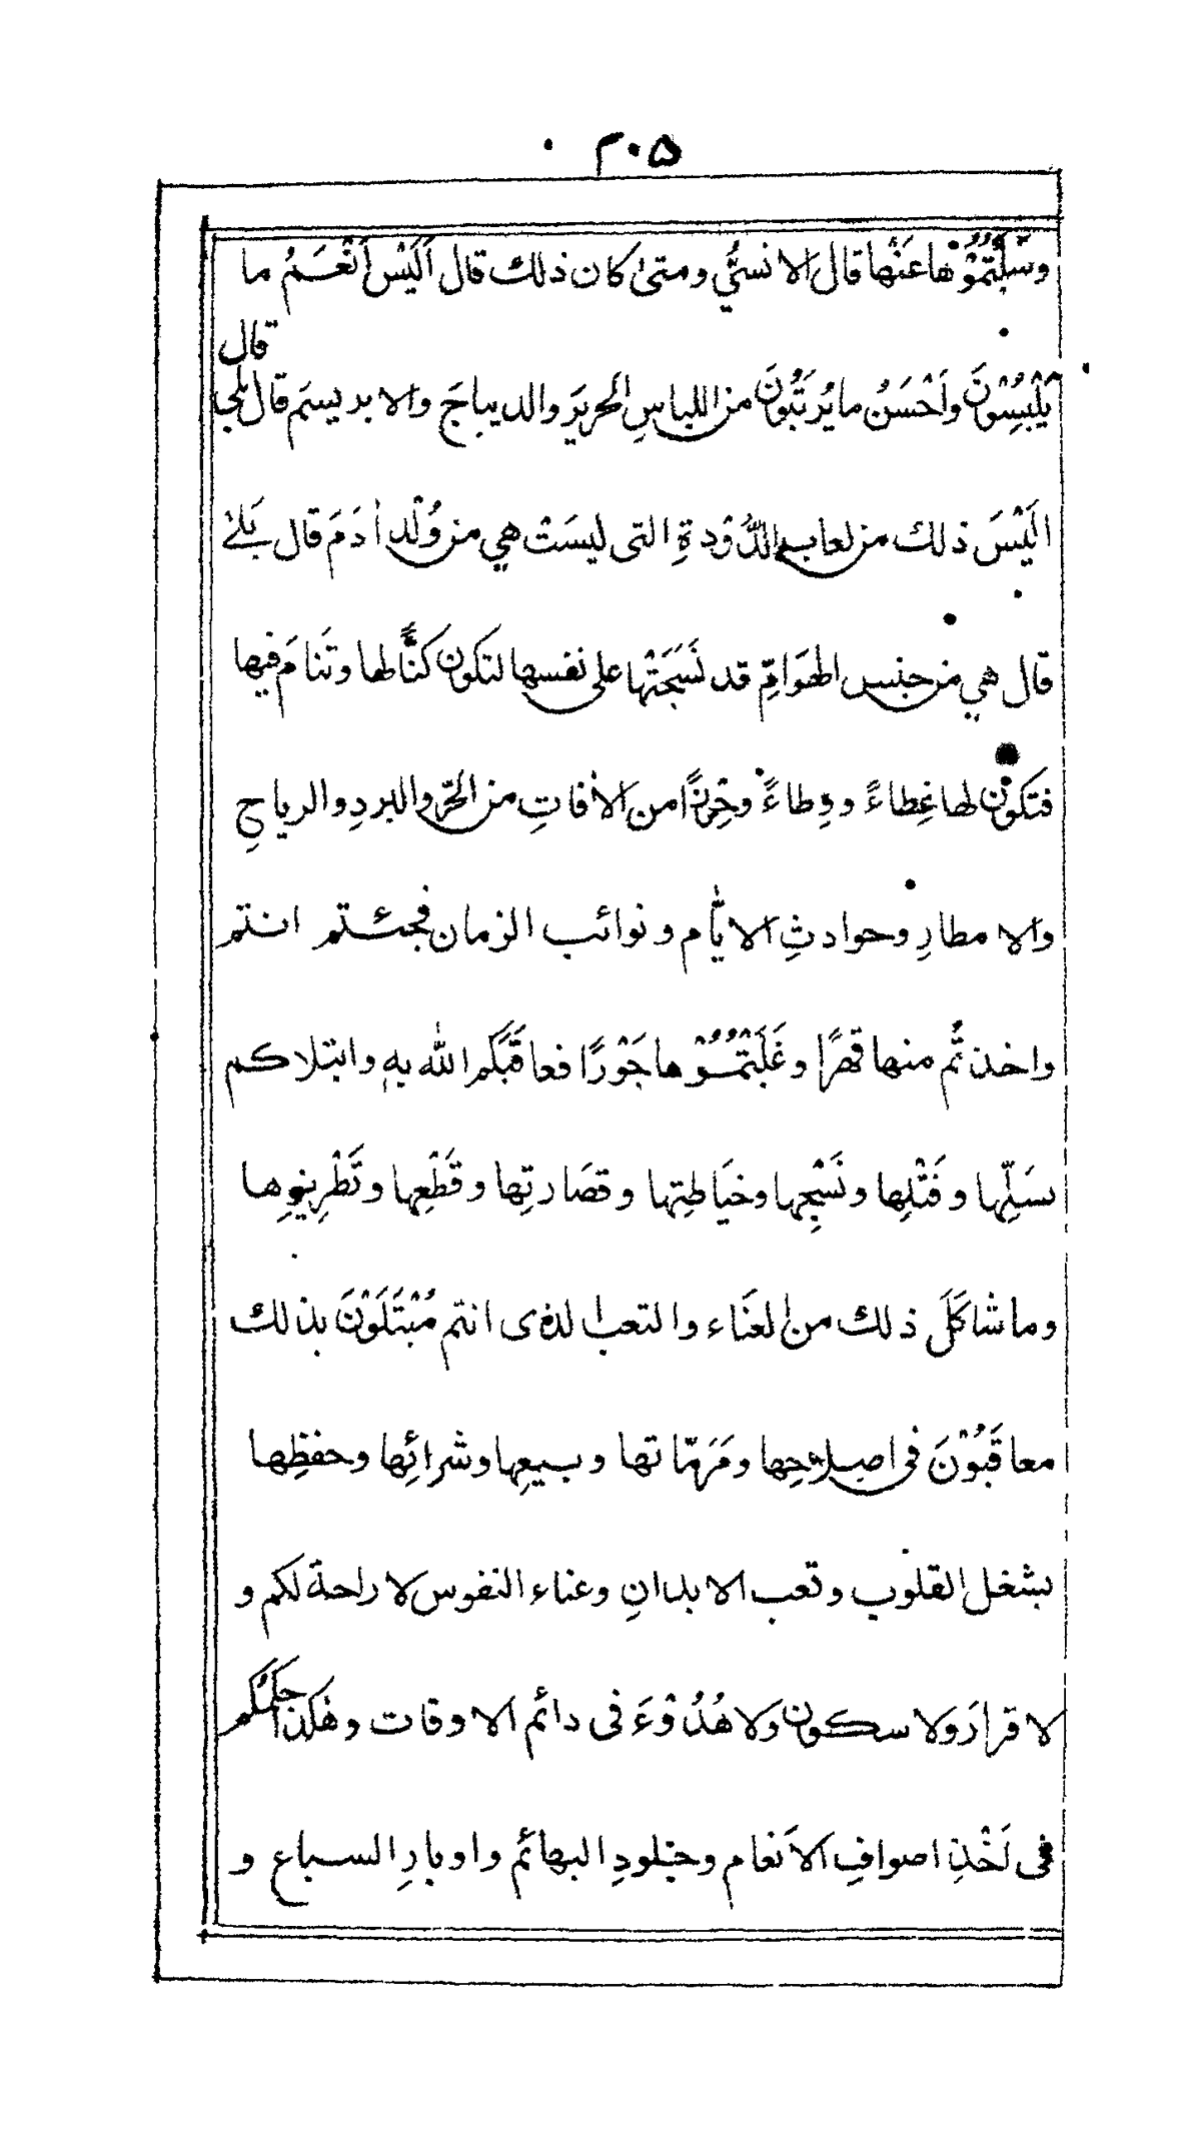 ٢٠٥
وسَلَبْتُمُوْها عَنْها قال الانسیُّ ومتیٰ کان ذلك قال اَلَیْسَ اَنْعَمُ ما
یَلْبِسُوْنَ واَحْسَنُ ما یُرَتَّبُونَ من اللباسِ الحریرَ والدیباجَ والابریسَم قال بلی قال
الَیْسَ ذلك من لعابِ الدُّوْدةِ التی لیسَتْ هی من وُلْدِ اٰدَمَ قال بَلیٰ
قال هی من جنس الهَوَامِّ قد نَسَجَتْها علی نفسها لتکون کنًّا لها وتَنامَ فیها
فتکَوْن لها غِطاءً ووِطاءً وحِرزًا من الاٰفاتِ من الحَرِّ والبردِ والریاحِ
والامطارِ وحوادثِ الایّام ونوائب الزمان فجئتم انتم
واخذتُم منها قهرًا وغَلَبْتُمُوْها جَوْرًا فعاقَبَکم اللّٰه بهٖ وابتلاکم
بسَلِّها وفَتْلِها ونَسْجِها وخیَاطِتِها وقصَارتِها وقَطْعِها وتَطْرِیزِها
وما شاکَلَ ذلك من العَنَاء والتعب الذی انتم مُبْتَلَوْنَ بذلك
معاقَبُوْنَ فی اصلاحِها ومَرَمّاتها وبیعِها وشرائِها وحفظِها
بشغل القلوب وتعب الابدانِ وعناء النفوس لا راحة لکم و
لا قرارَ ولا سکون وَلا هُدُوْءَ فی دائم الاوقات وهٰکذا حکمُکم
فی اَخْذِ اصوافِ الاَنعام وجلودِ البهائم واوبارِ السباع و